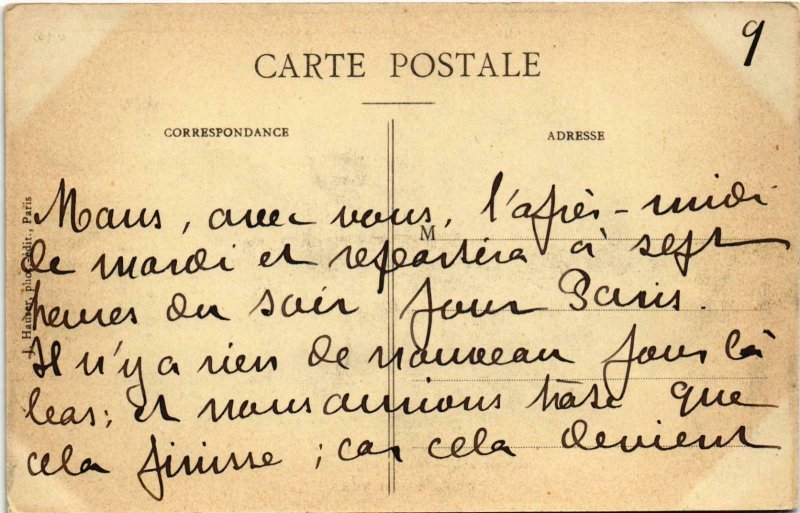 9
CARTE POSTALE
CORRESPONDANCE
ADRESSE
M
J. Hauser, phot.-édit., Paris
Mans, avec vous, l'après-midi
de mardi et repartira à sept
heures du soir pour Paris.
Il n'y a rien de nouveau pour là
bas; et nous aurions hâte que
cela finisse; car cela devient